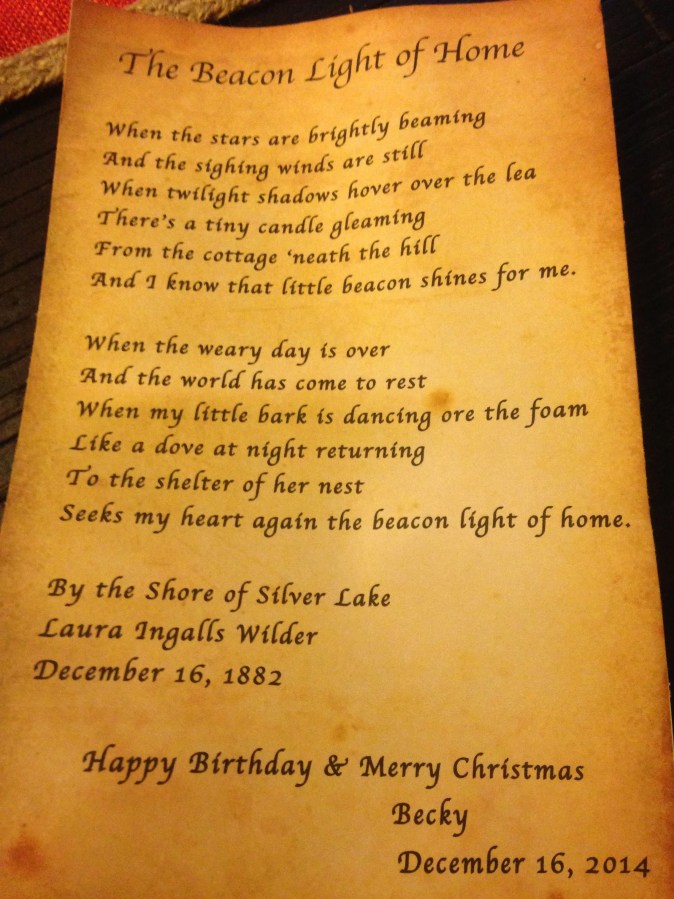 The Beacon Light of Home
When the stars are brightly beaming
And the sighing winds are still
When twilight shadows hover over the lea
There's a tiny candle gleaming
From the cottage ‘neath the hill
And I know that little beacon shines for me.
When the weary day is over
And the world has come to rest
When my little bark is dancing ore the foam
Like a dove at night returning
To the shelter of her nest
Seeks my heart again the beacon light of home.
By the Shore of Silver Lake
Laura Ingalls Wilder
December 16, 1882
Happy Birthday & Merry Christmas
Becky
December 16, 2014